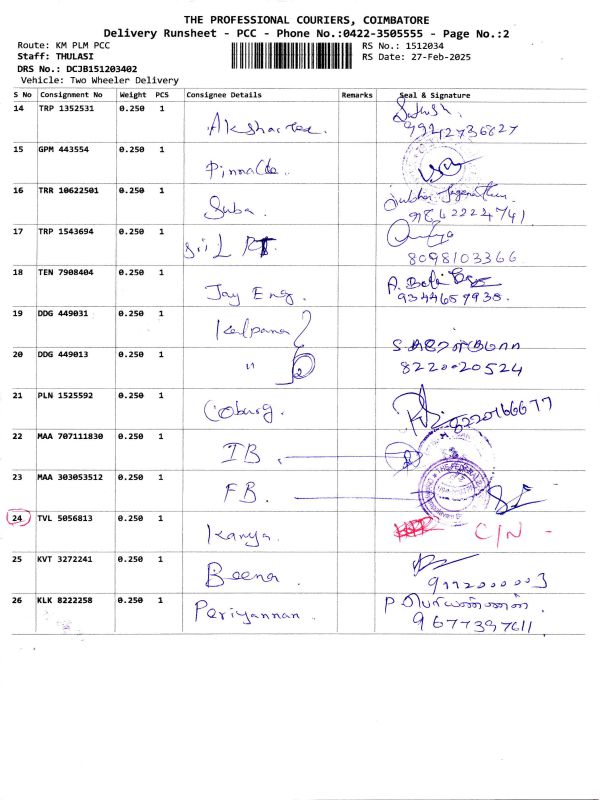 THE PROFESSIONAL COURIERS, COIMBATORE
Delivery Runsheet - PCC - Phone No.:0422-3505555 - Page No.:2
Route: KM PLM PCC RS No.: 1512034
Staff: THULASI RS Date: 27-Feb-2025
DRS No.: DCJB151203402
Vehicle: Two Wheeler Delivery
S No Consignment No Weight PCS Consignee Details Remarks Seal & Signature
14 TRP 1352531 0.250 1
99942736827
15 GPM 443554 0.250 1 Pinnacle
16 TRR 10622501 0.250 1 Suba.
17 TRP 1543694 0.250 1 Sri L
8098103366
18 TEN 7908404 0.250 1 Jay Eng.
9344657935.
19 DDG 449031 0.250 1 Kalpana
20 DDG 449013 0.250 1 "
8220020524
21 PLN 1525592 0.250 1 Coburg.
8220766677
22 MAA 707111830 0.250 1 IB.
23 MAA 303053512 0.250 1 FB.
THE FEDERAL
24 TVL 5056813 0.250 1 Kanya. C/N -
25 KVT 3272241 0.250 1 Beena.
26 KLK 8222258 0.250 1 Periyannan. P பெரியண்ணன்.
9677397611